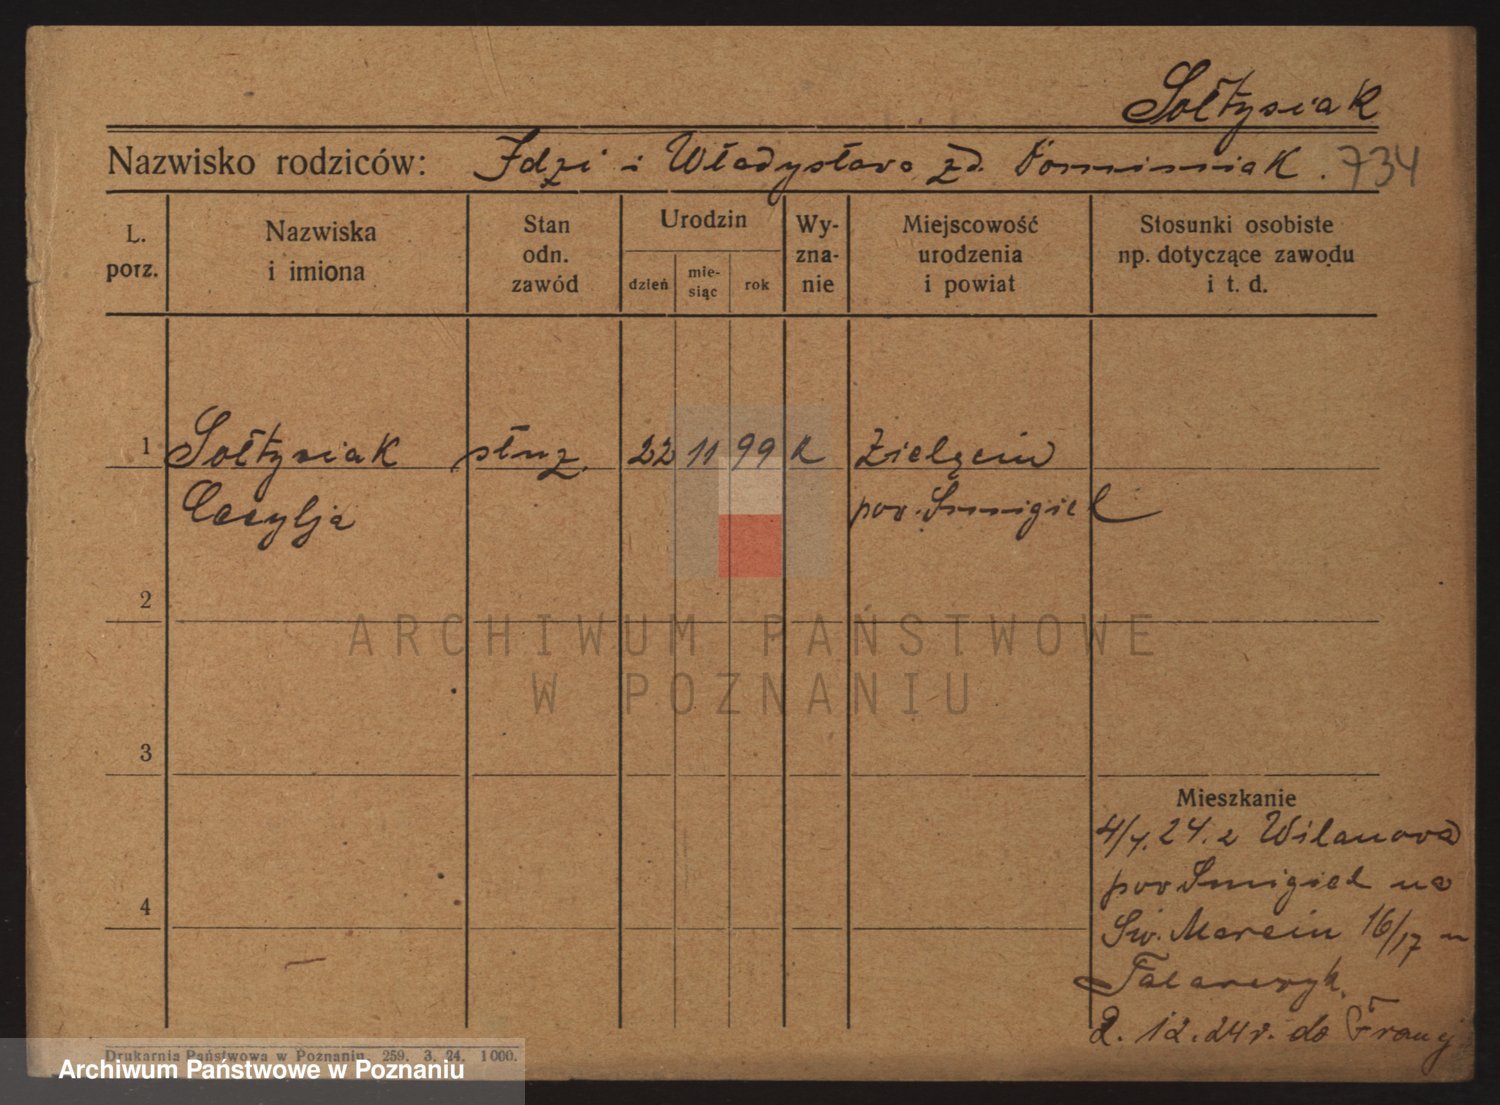 Sołtysiak
Nazwisko rodziców: Idzi i Władysława zd. 734
L. porz.
Nazwiska i imiona
Stan odn. zawód
Urodzin
dzień
mie-siąc
rok
Wy-zna-nie
Miejscowość urodzenia i powiat
Stosunki osobiste np. dotyczące zawodu i t. d.
1 Sołtysiak służ. 22 11 99 k Zielęcin
Cecylja pow. Śmigiel
2
ARCHIWUM PAŃSTWOWE
W POZNANIU
3
Mieszkanie
24. z Wilanowa
pow Śmigiel na
4
Św. Marcin 16/17 u
2. 12. 24 r. do Francj
Drukarnia Państwowa w Poznaniu. 259. 3. 24. 1000.
Archiwum Państwowe w Poznaniu